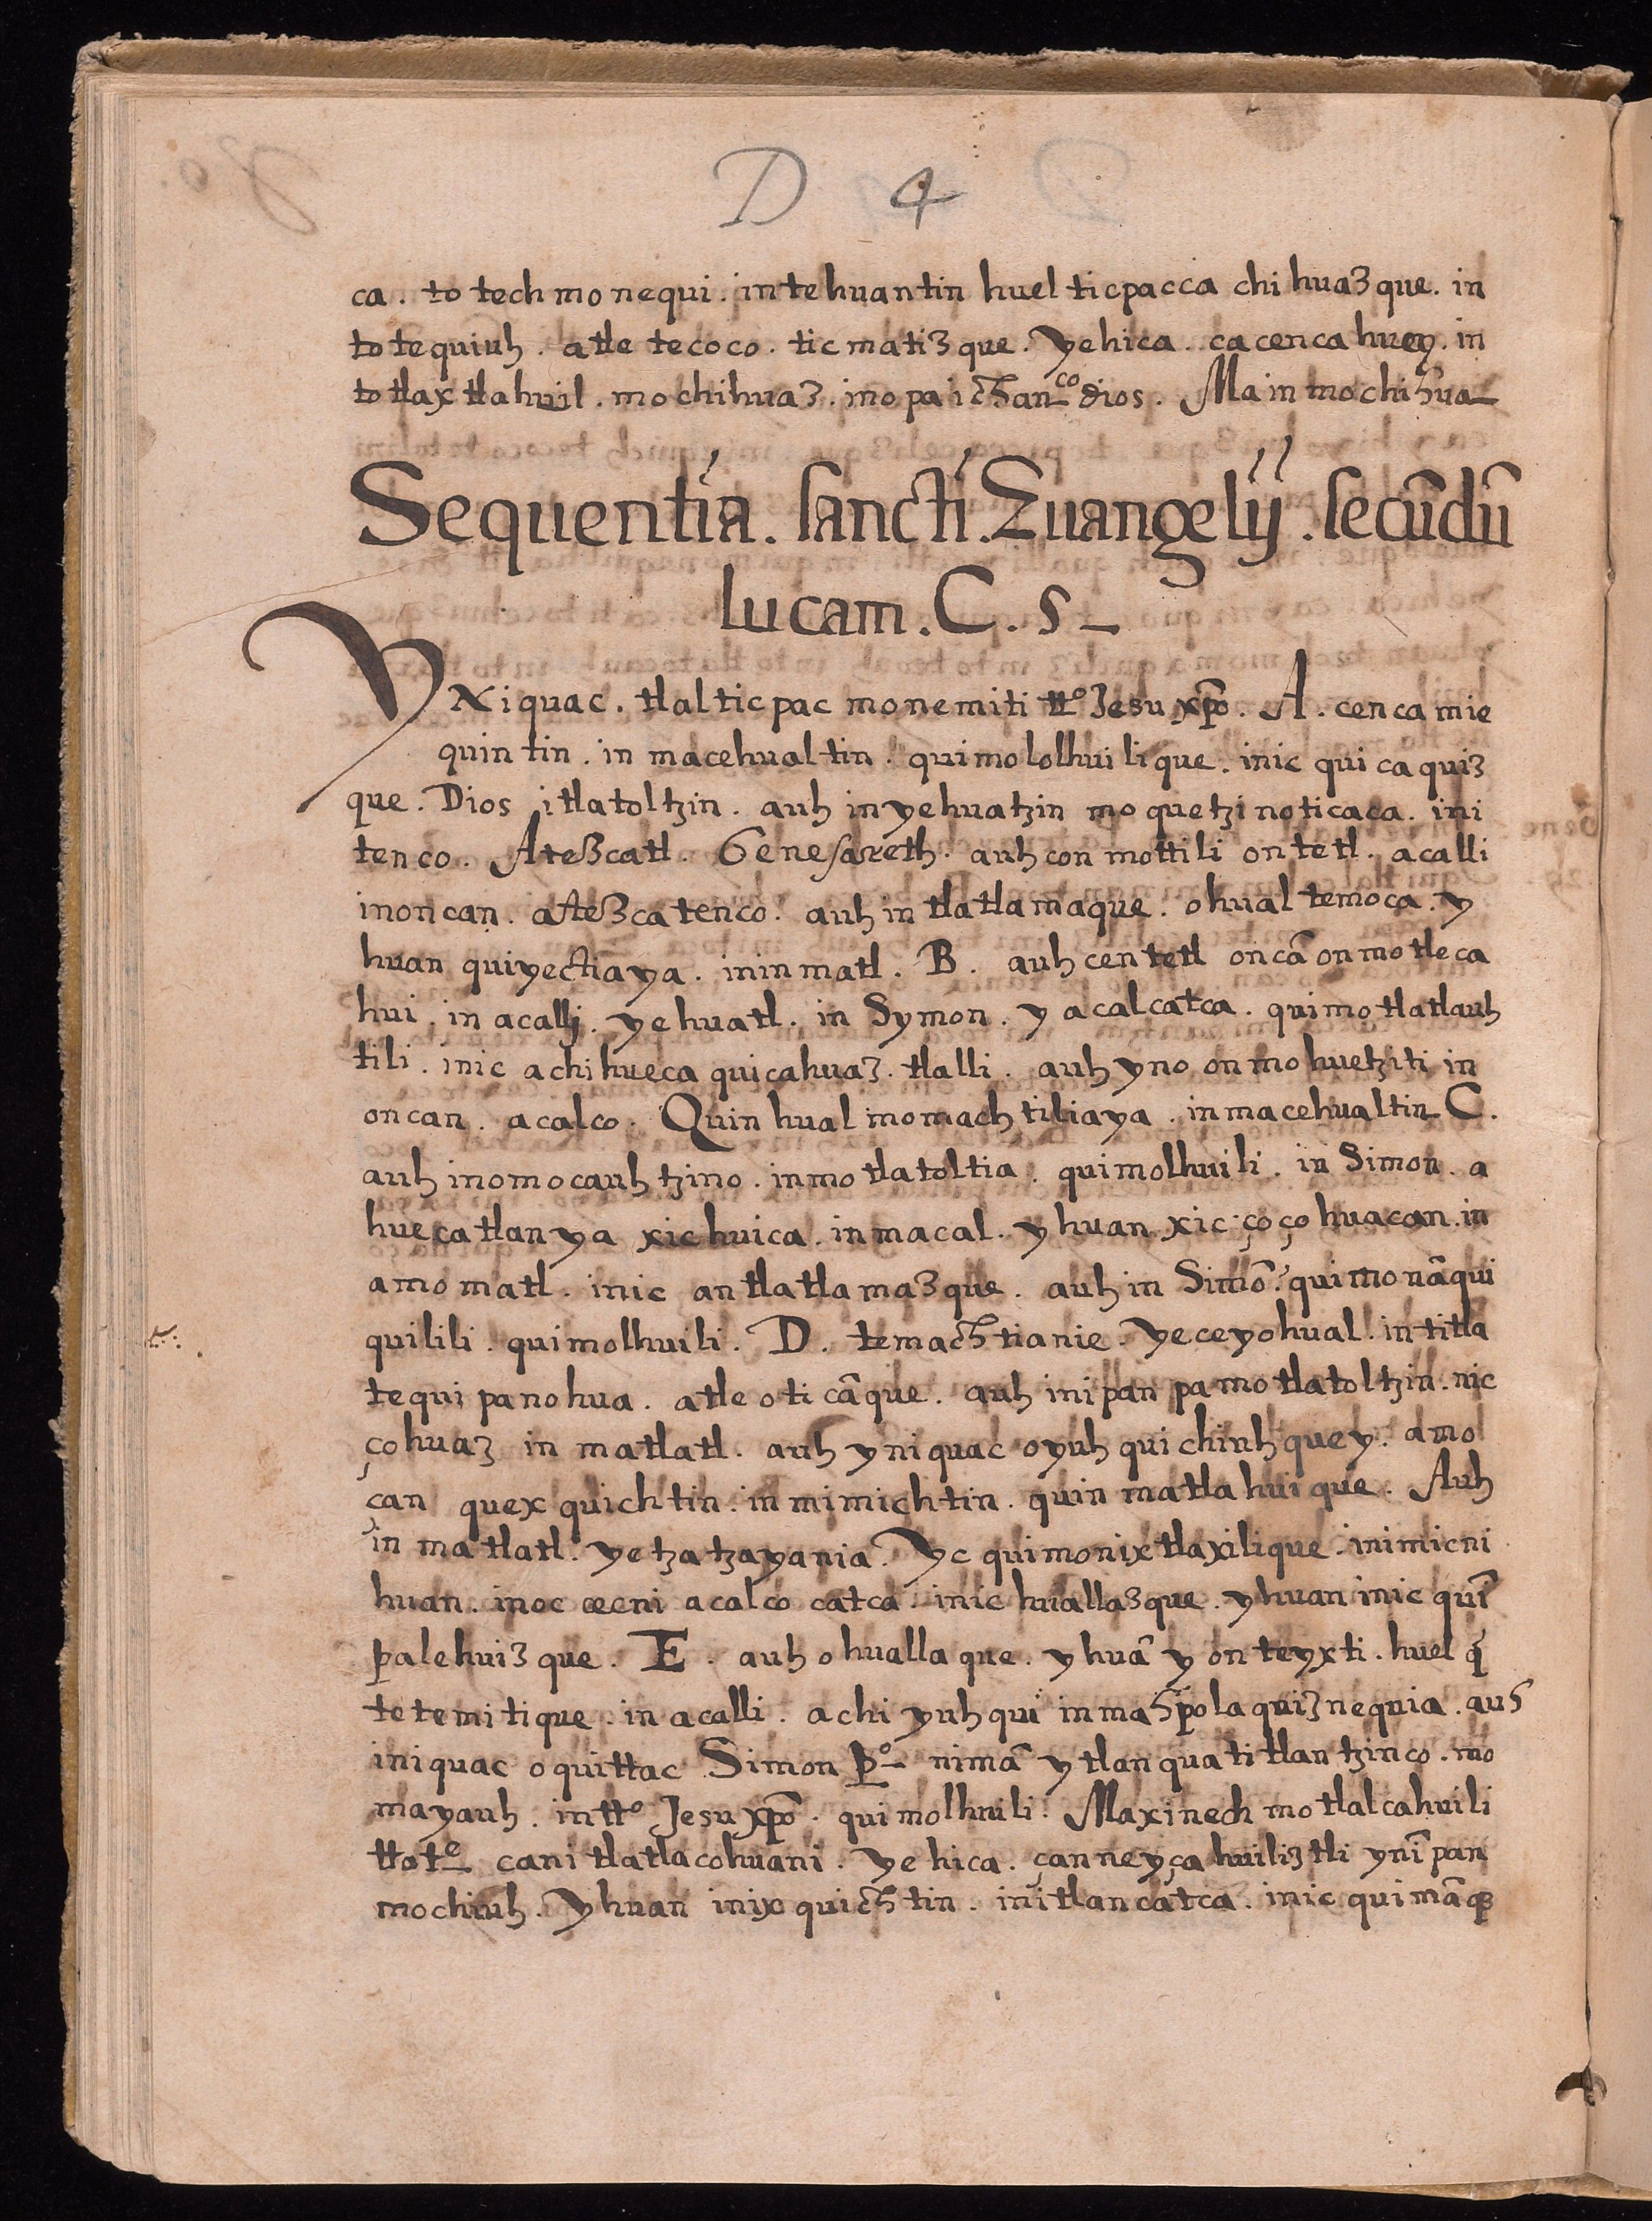 D 4
ca . to tech mo nequi . in tehuantin huel ticpacca chi huaȝque . in
to tequiuh . atle tecoco . tic matiȝ que . yehica . ca cenca huey . in
to tlax tlahuil . mo chihuaȝ . ino pa ichan^co dios . Ma in mo chihua
Sequentia . sancti . Euangelij . secūdū
lucam . C . 5
Yn iquac . tlalticpac monemiti tt^o Jesu xp̄o . A . cenca mie
quintin . in macehualtin . quimololhuilique . inic qui caquiȝ
que . Dios itlatoltzin . auh in yehuatzin mo quetzinoticaca . ini
tenco . Ateȝcatl . Genesareth . auh con mottili ontetl . acalli
inoncan . ateȝca tenco . auh in tlatlamaque . ohual temoca . y
huan quiyectiaya . inin matl . B . auh centetl oncā onmotleca
hui . in acallj . yehuatl . in Symon . y acal catca . quimotlatlauh
tili . inic achi hueca quicahuaȝ . tlalli . auh yno onmohuetziti in
oncan . acalco . Quin hual momachtiliaya . in macehualtin C .
auh inomocauhtzino . inmotlatoltia . quimolhuili . in Simon . a
huecatlan ya xichuica . inmacal . yhuan xic çoçohuacan . in
amo matl . inic antlatlamaȝque . auh in Simō . quimonāqui
quilili . quimolhuili . D . temachtianie . ye ceyohual . in titla
tequi panohua . atle oti cāque . auh inipan pa motlatoltzin . nic
çohuaȝ in matlatl . auh yniquac oyuh qui chiuh quey . amo
çan quex quichtin . in mimichtin . quin matlahuique . Auh
in matlatl . ye tzatzayania . Yc quimonixtlaxilique . inimicni
huan . inoc cecni acalco catca . inic huallaȝque . yhuan inic quī
palehuiȝque . E . auh ohuallaque . yhuā y onteyxti . huel q̄
tetemitique . in acalli . achi yuhqui inmah polaquiȝnequia . auh
iniquac oquittac Simon P^o nimā ytlanquatitlantzinco . mo
mayauh . intt^o Jesu xp̄o . quimolhuili . Maxinech motlalcahuili
ttot^e canitlatlacohuani . Yehica . çan neyçahuiliȝtli ynīpan
mochiuh . Yhuan inixquichtin . initlan catca . inic quimāq̄